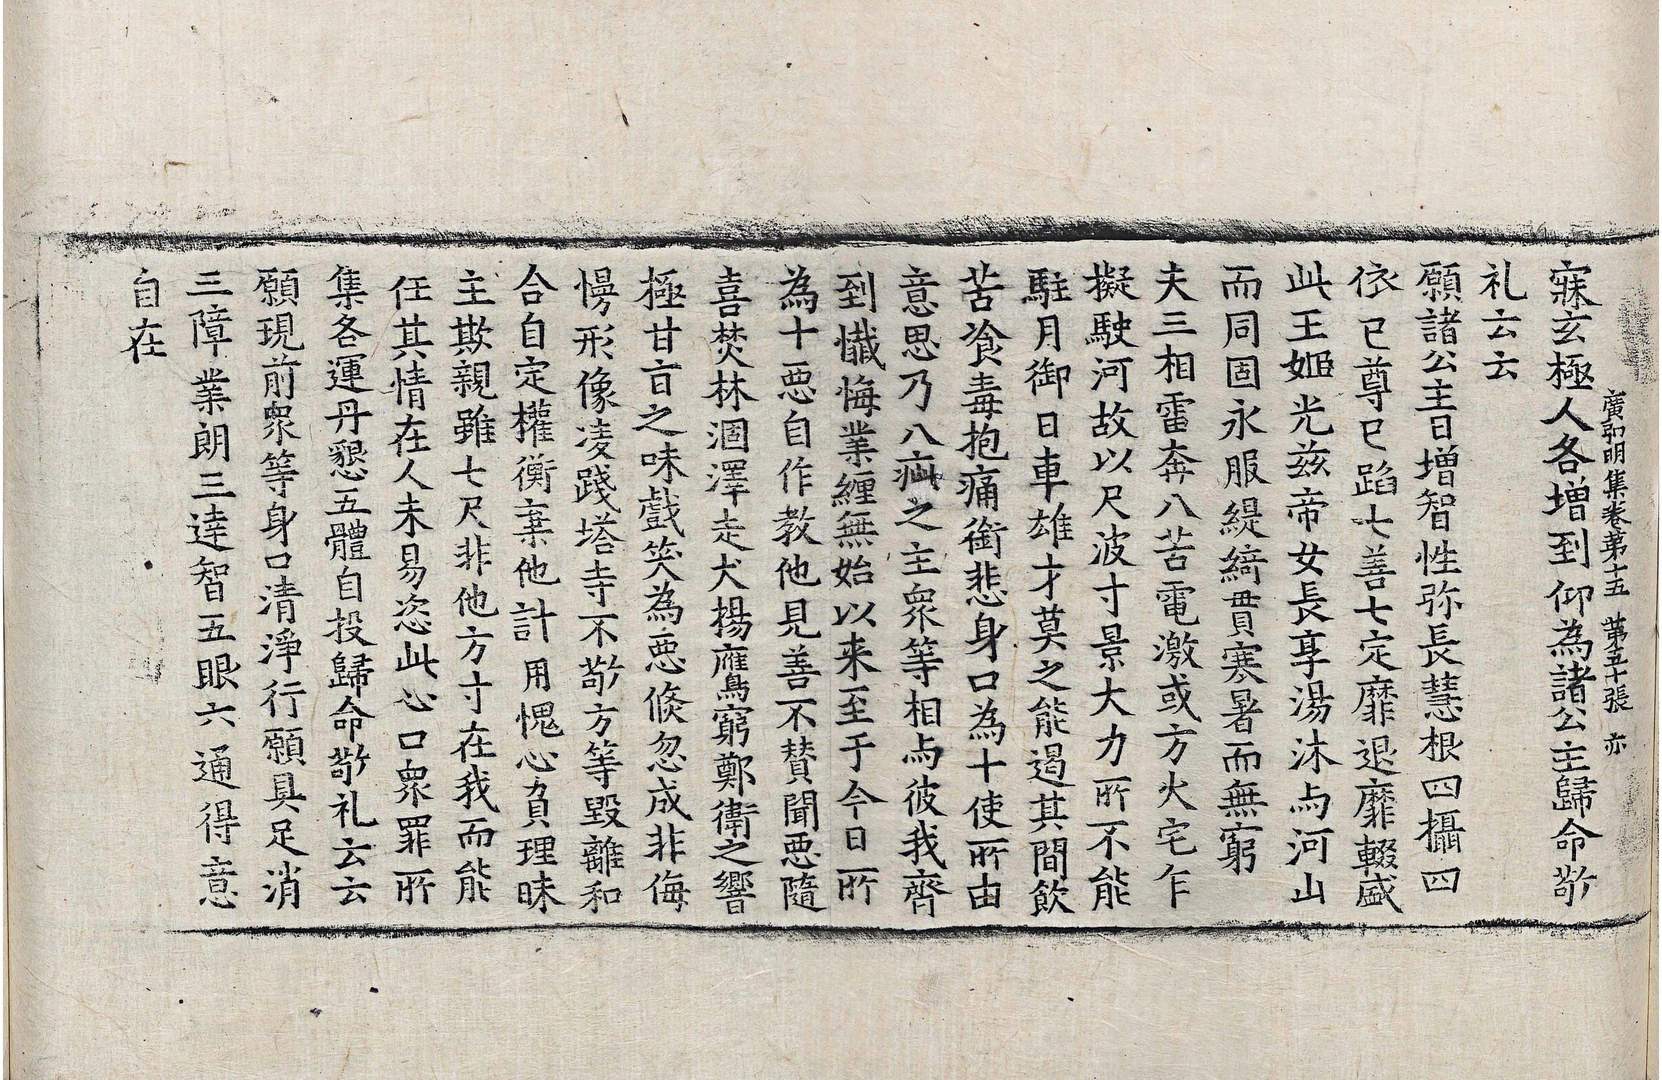 寐玄極人各增到仰為諸公主歸命敬
廣弘明集卷第十五　第五十張　亦
礼云云
願諸公主日增智性弥長慧根四攝四
依已尊已蹈七善七定靡退靡輟盛
此王姬光茲帝女長享湯沐与河山
而同固永服緹綺貫寒暑而無窮
夫三相雷奔八苦電激或方火宅乍
擬駛河故以尺波寸景大力所不能
駐月御日車雄才莫之能遏其間飲
苦飡毒抱痛銜悲身口為十使所由
意思乃八疵之主衆等相与彼我齊
到懺悔業纏無始以来至于今日所
為十惡自作教他見善不賛聞惡隨
喜焚林涸澤走犬揚鷹窮鄭衛之響
極甘旨之味戲笑為惡倏忽成非侮
慢形像凌踐塔寺不敬方等毀離和
合自定權衡棄他計用愧心負理昧
主欺親雖七尺非他方寸在我而能
任其情在人未易恣此心口衆罪所
集各運丹懇五體自投歸命敬礼云云
願現前衆等身口清淨行願具足消
三障業朗三達智五眼六通得意
自在